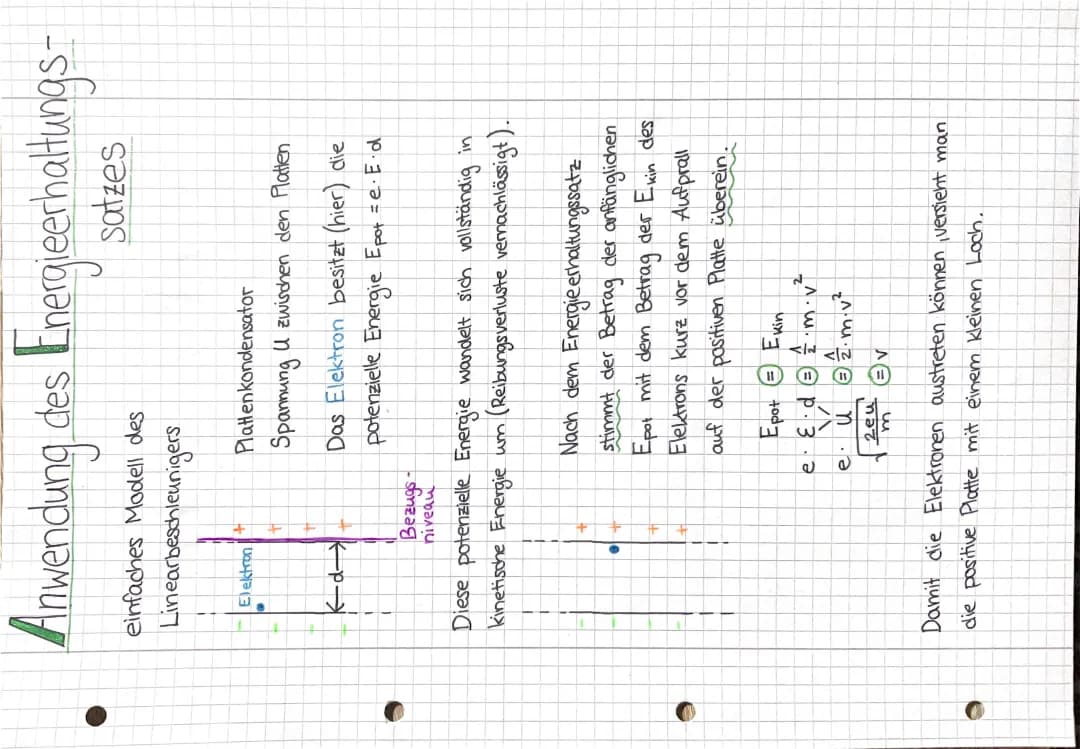 Anwendung des Energieerhaltungs-
satzes
einfaches Modell des
Linearbeschleunigers
- Elektron +
- +
- +
- ←d→ +
Bezugs-
niveau
Plattenkondensator
Spannung U zwischen den Platten
Das Elektron besitzt (hier) die
potenzielle Energie Epot = e·E·d
Diese potenzielle Energie wandelt sich vollständig in
kinetische Energie um (Reibungsverluste vernachlässigt).
- +
- +
- +
- +
Nach dem Energieerhaltungssatz
stimmt der Betrag der anfänglichen
Epot mit dem Betrag der Ekin des
Elektrons kurz vor dem Aufprall
auf der positiven Platte überein.
Epot = Ekin
e · E · d = 1/2 · m · v²
e · U = 1/2 · m · v²
√(2eU/m) = v
Damit die Elektronen austreten können, versieht man
die positive Platte mit einem kleinen Loch.